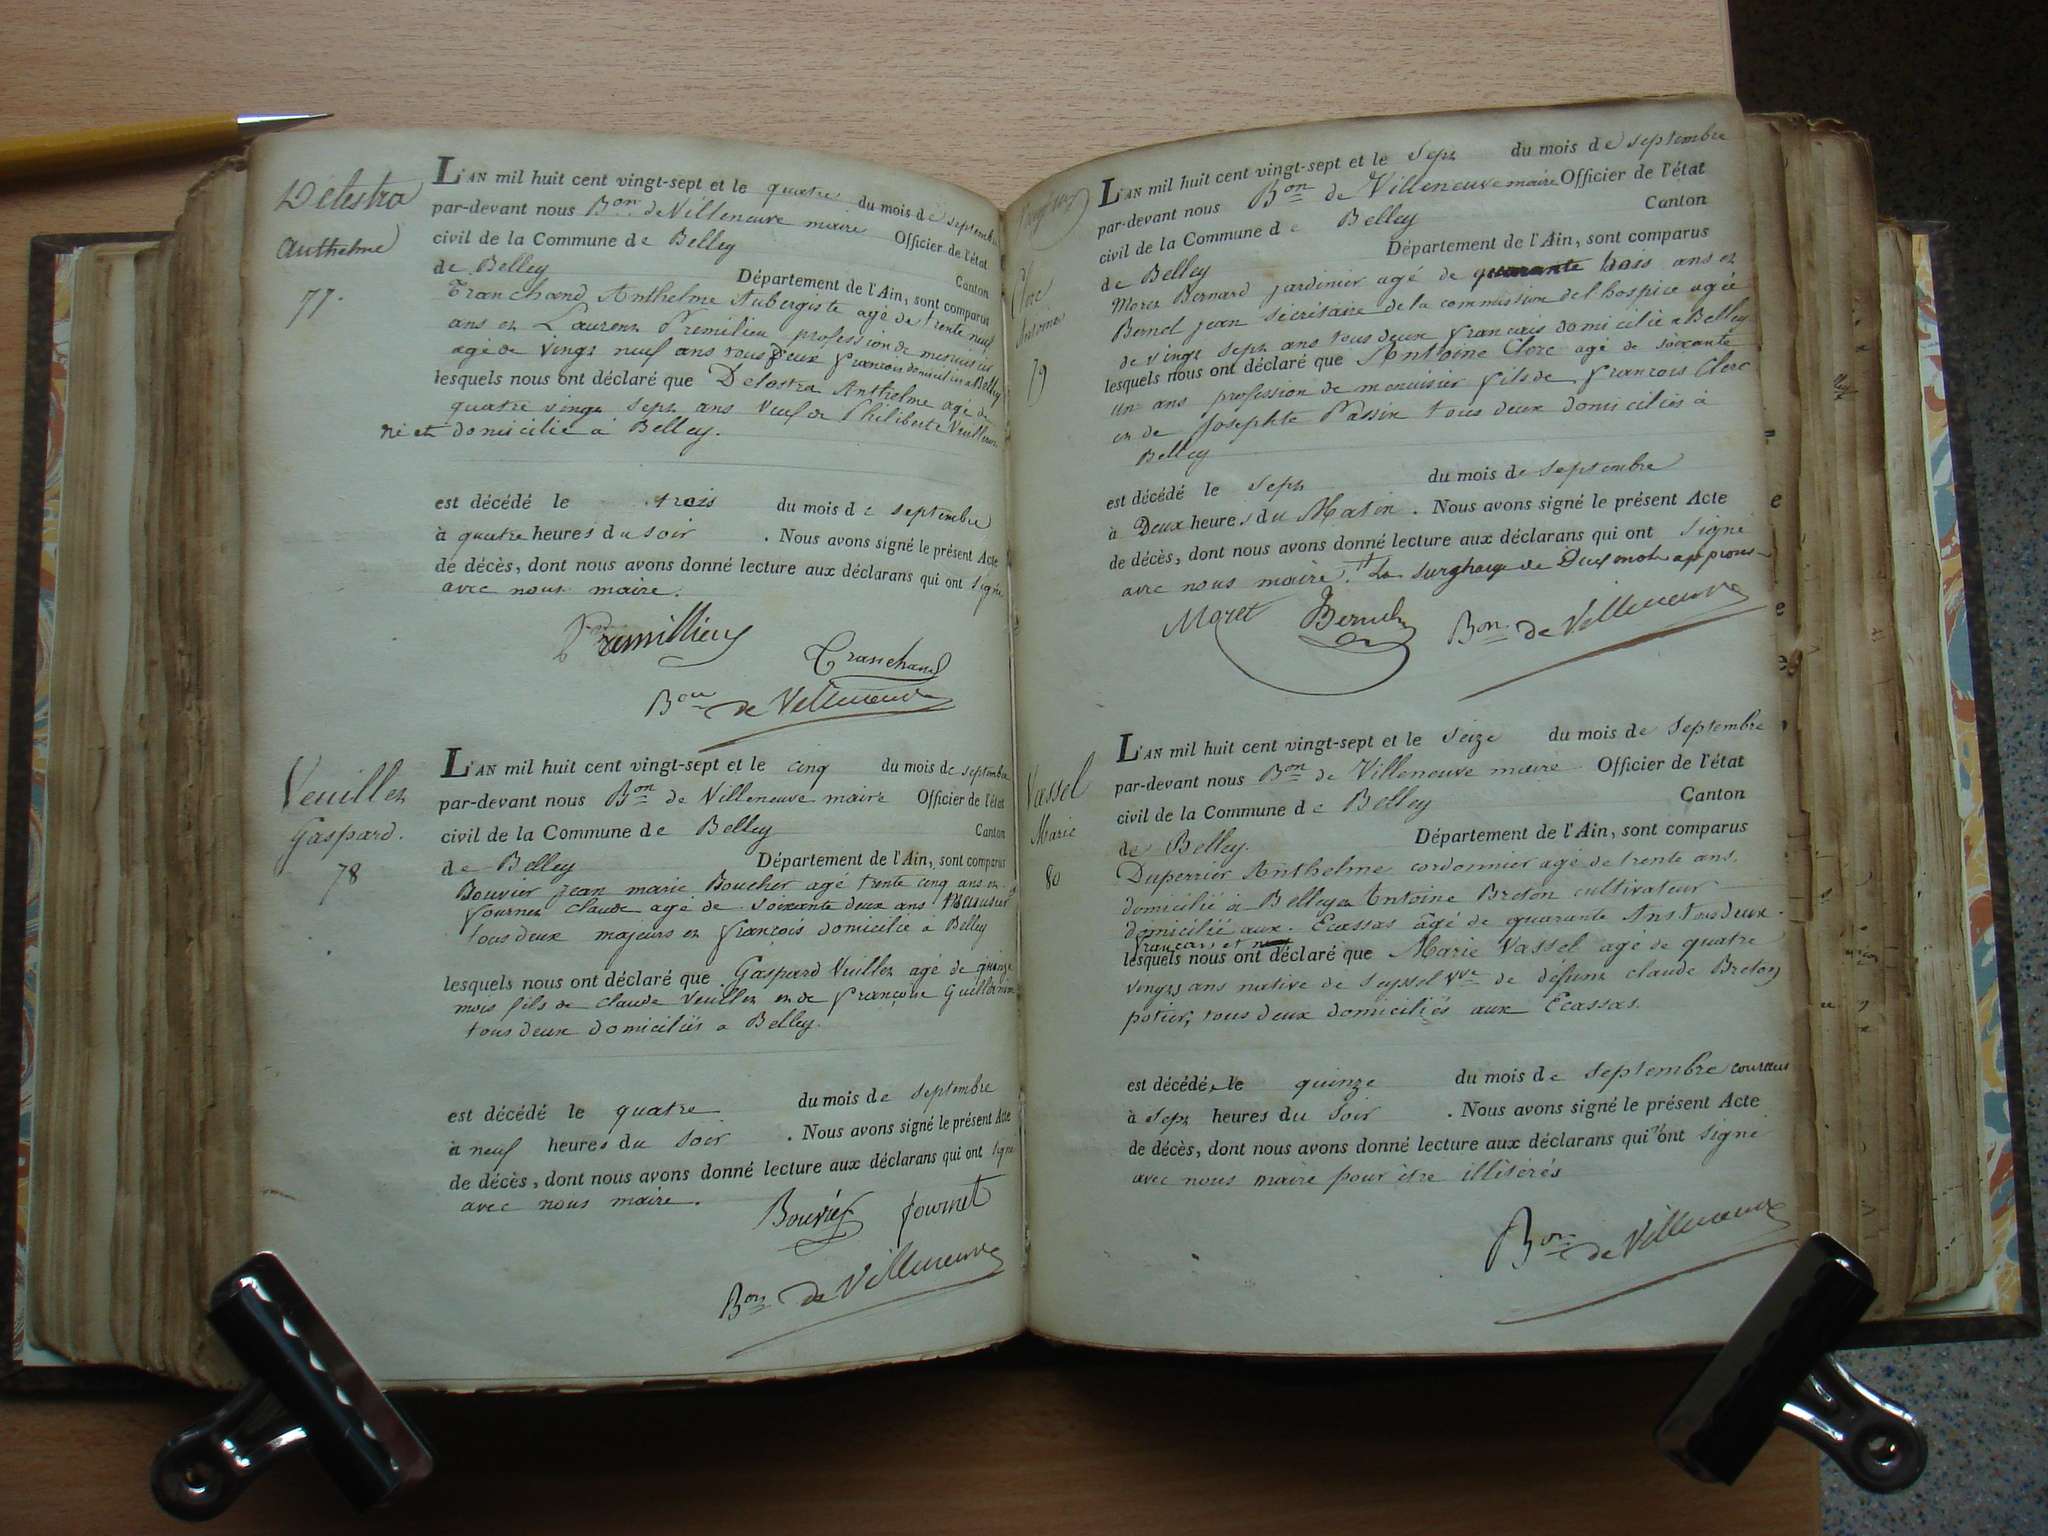 Delestra
Anthelme
77.
L'AN mil huit cent vingt-sept et le quatre du mois de septembre
par-devant nous Bon de Villeneuve maire Officier de l'état
civil de la Commune de Belley Canton
de Belley Département de l'Ain, sont comparus
Tranchand Anthelme Aubergiste agé de trente neuf
ans et Laurent Premilieu profession de menuisier
agé de vingt neuf ans tous Deux francois domicilies a Belley
lesquels nous ont déclaré que Delestra Anthelme agé de
quatre vingt sept ans Veuf de Philiberte Veuilleros
né et domicilié à Belley.
est décédé le trois du mois de septembre
à quatre heures du soir . Nous avons signé le présent Acte
de décès, dont nous avons donné lecture aux déclarans qui ont signé
avec nous maire.
Premillieu
Tranchand
Bon de Villeneuve
Veuillet
Gaspard.
78
L'AN mil huit cent vingt-sept et le cinq du mois de septembre
par-devant nous Bon de Villeneuve maire Officier de l'état
civil de la Commune de Belley Canton
de Belley Département de l'Ain, sont comparus
Bouvier jean marie Boucher agé trente cinq ans et
fournet claude agé de soixante deux ans Menuisier
tous deux majeurs et françois domicilié à Belley
lesquels nous ont déclaré que Gaspard Vuillet agé de quinze
mois fils de claude Veuillet et de françoise Guillermin
tous deux domiciliés a Belley.
est décédé le quatre du mois de septembre
à neuf heures du soir . Nous avons signé le présent Acte
de décès, dont nous avons donné lecture aux déclarans qui ont signé
avec nous maire.
Bouvier fournet
Bon de Villeneuve
Clerc
Antoine
79
L'AN mil huit cent vingt-sept et le sept du mois de septembre
par-devant nous Bon de Villeneuve maire Officier de l'état
civil de la Commune de Belley Canton
de Belley Département de l'Ain, sont comparus
Moret Bernard jardinier agé de quarante trois ans et
Bernel jean Sécrétaire de la commission de l'hospice agé
de vingt sept ans tous deux francais domicilié a Belley
lesquels nous ont déclaré que Antoine Clerc agé de soixante
un ans profession de menuisier fils de françois Clerc
et de Josephte Passin tous deux domiciliés à
Belley
est décédé le sept du mois de septembre
à Deux heures du Matin . Nous avons signé le présent Acte
de décès, dont nous avons donné lecture aux déclarans qui ont signé
avec nous maire. La surcharge de Deux mots approuvée
Moret Bernel Bon de Villeneuve
Vassel
Marie
80
L'AN mil huit cent vingt-sept et le seize du mois de Septembre
par-devant nous Bon de Villeneuve maire Officier de l'état
civil de la Commune de Belley Canton
de Belley. Département de l'Ain, sont comparus
Duperrier Anthelme cordonnier agé de trente ans.
domicilié à Belley et Antoine Breton cultivateur
domicilié aux Ecassas âgé de quarante Ans tous deux
francais et
lesquels nous ont déclaré que Marie Vassel agé de quatre
vingts ans native de Seyssel Vve de défunt claude Breton
potier, tous deux domiciliés aux Ecassas.
est décédée le quinze du mois de septembre courant
à sept heures du soir . Nous avons signé le présent Acte
de décès, dont nous avons donné lecture aux déclarans qui n'ont signé
avec nous maire pour être illitérés
Bon de Villeneuve